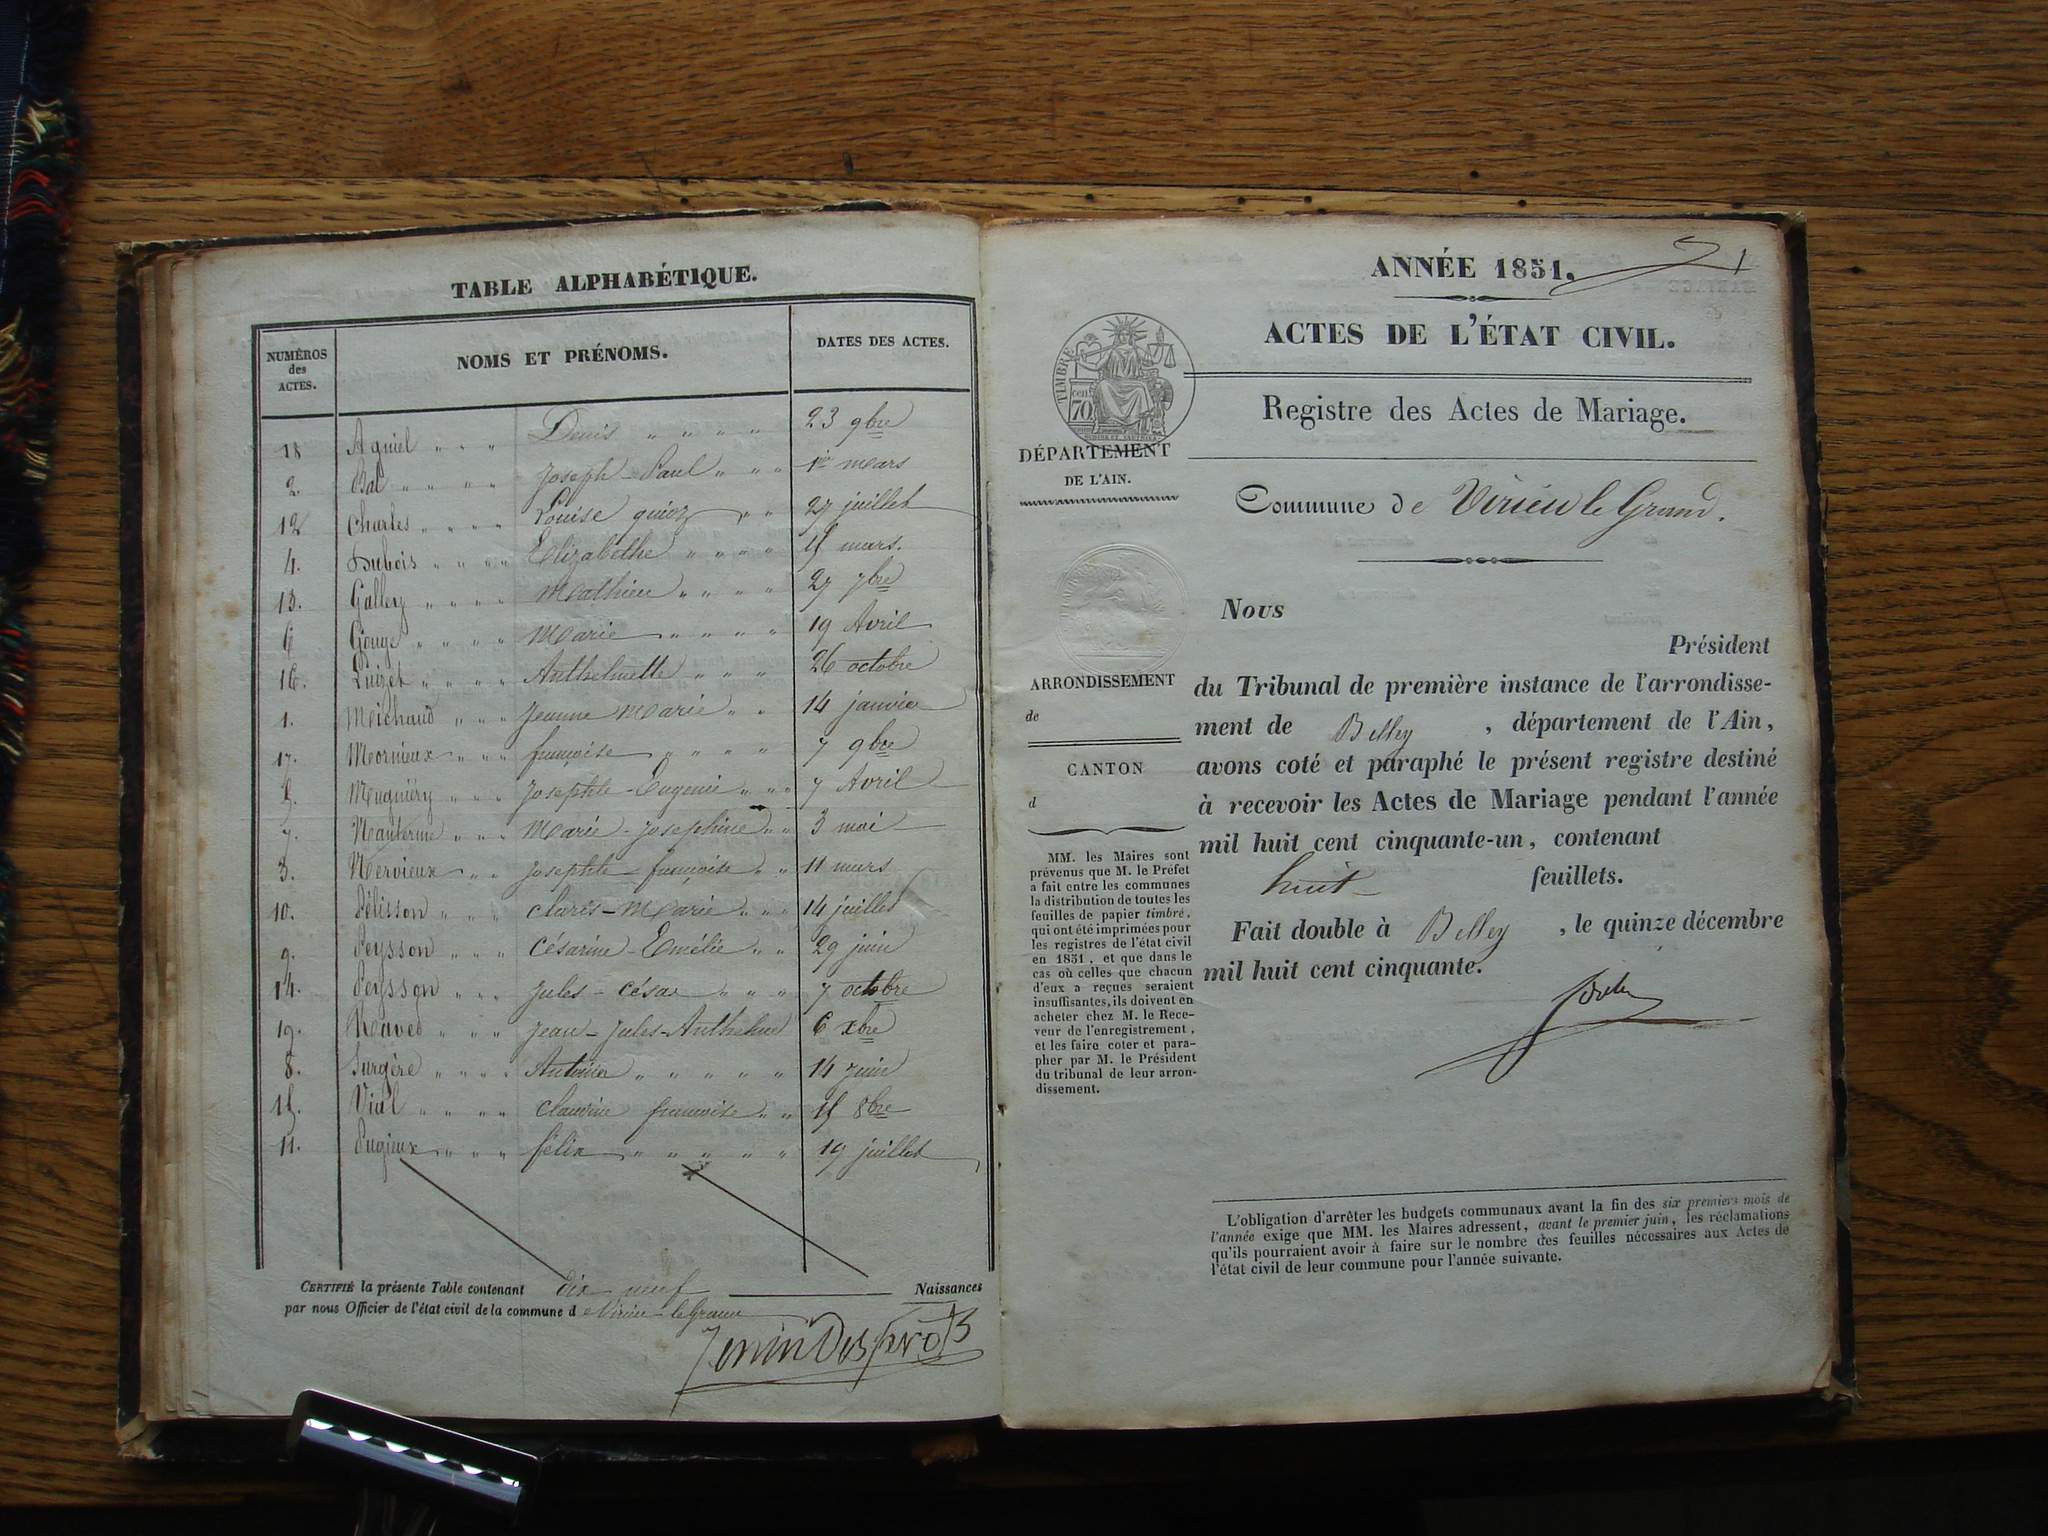 TABLE ALPHABÉTIQUE.
NUMÉROS des ACTES. NOMS ET PRÉNOMS. DATES DES ACTES.
18 Aguiel " " " Denis " " " " 23 9bre
2. Bal " " " " Joseph-Paul " " " 1er mars
12 Charles " " " " Louise " " 27 juillet
4. Dubois " " " " Elizabethe " " " " 15 mars.
13. Gallery " " " " Mathieu " " " " 27 7bre
6 Gouge " " " " Marie " " " " 19 Avril
16. Luizet " " " " Anthelmette " " " 26 octobre
1. Michaud " " " Jeanne Marie " " 14 janvier
17. Mornieux " " " françoise " " " " 7 9bre
5. Mugniery " " " Josephte-Eugenie " " " 7 Avril
7. " " " Marie-Josephine " " 3 mai
3. Nervieux " " Josephte-françoise " " 11 mars
10. Pélisson " " " Marie " " 14 juillet
9. Peysson " " " Césarine-Emélie " " 29 juin
14. Peysson " " " Jules-César " " " 7 octobre
19. " " " Jean-Jules-Anthelme 6 xbre
8. Surgère " " " " " " " " " 14 juin
15. Vial " " " " Claudine françoise " " 15 8bre
11. Pugieux " " " félix " " " " " 19 juillet
CERTIFIÉ la présente Table contenant dix neuf Naissances
par nous Officier de l'état civil de la commune de Virieu-le-Grand
ANNÉE 1851. 1
ACTES DE L'ÉTAT CIVIL.
TIMBRE
cen.
70
Registre des Actes de Mariage.
DÉPARTEMENT
DE L'AIN.
Commune de Virieu le Grand.
Nous
Président
ARRONDISSEMENT
de
CANTON
d
du Tribunal de première instance de l'arrondisse-
ment de Belley , département de l'Ain,
avons coté et paraphé le présent registre destiné
à recevoir les Actes de Mariage pendant l'année
mil huit cent cinquante-un, contenant
huit feuillets.
Fait double à Belley , le quinze décembre
mil huit cent cinquante.
MM. les Maires sont
prévenus que M. le Préfet
a fait entre les communes
la distribution de toutes les
feuilles de papier timbré,
qui ont été imprimées pour
les registres de l'état civil
en 1851, et que dans le
cas où celles que chacun
d'eux a reçues seraient
insuffisantes, ils doivent en
acheter chez M. le Rece-
veur de l'enregistrement,
et les faire coter et para-
pher par M. le Président
du tribunal de leur arron-
dissement.
L'obligation d'arrêter les budgets communaux avant la fin des six premiers mois de
l'année exige que MM. les Maires adressent, avant le premier juin, les réclamations
qu'ils pourraient avoir à faire sur le nombre des feuilles nécessaires aux Actes de
l'état civil de leur commune pour l'année suivante.